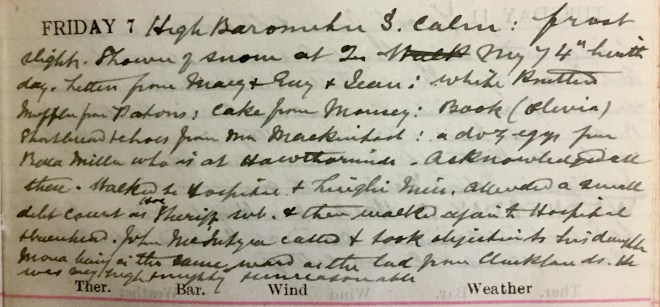 FRIDAY 7 High Barometer S. Calm: frost
slight. Shower of snow at 2. Walk My 74th birth
day. Letters from Mary & Guy & Jean: white knitted
Muffler from Patons; Cake from Mousey: Book (Olivia)
Shortbread & shoes from Mrs Mackintosh: a doz eggs from
Bella Miller who is at Hawthorn. Acknowledged all
these. Walked to Hospital & Knight Min. attended a small
debt court as Hon Sheriff sub. & then walked again to Hospital
John McIntyre called & took objection to his daughter
Mona being in the same ward as the lad from Clucklands. He
was very rough & unreasonable
Ther. Bar. Wind Weather